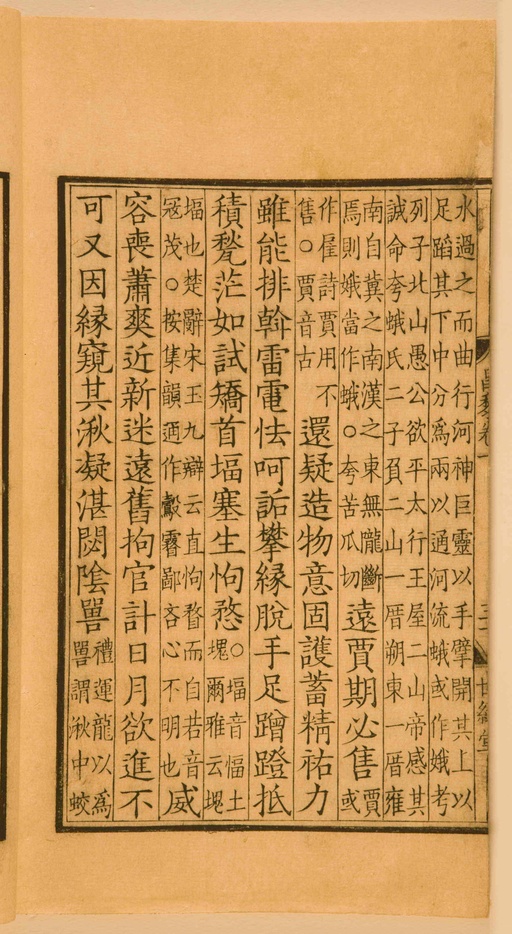 水過之而曲行河神巨靈以手擘開其上以
足蹈其下中分為兩以通河流蛾或作娥考
列子北山愚公欲平太行王屋二山帝感其
誠命夸蛾氏二子負二山一厝朔東一厝雍
南自冀之南漢之東無隴斷
焉則娥當作蛾○夸苦瓜切
遠賈期必售
賈
或
作雇詩賈用不
售○賈音古
還疑造物意固護蓄精祐力
雖能排斡雷電怯呵詬攀緣脫手足蹭蹬抵
積甃茫如試矯首堛塞生怐愗
○堛音愊土
塊爾雅云塊
堛也楚辭宋玉九辯云直怐瞀而自若音
冦茂○按集韻迺作瞉霿鄙吝心不明也
威
容喪蕭爽近新迷遠舊拘官計日月欲進不
可又因緣窺其湫凝湛閟陰嘼
禮運龍以為
嘼謂湫中蛟
昌黎卷一
世綵堂